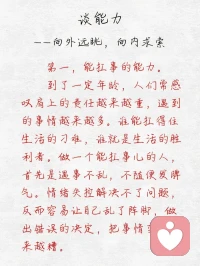 谈能力
--向外远眺，向内求索
第一，能扛事的能力。
到了一定年龄，人们常感
叹肩上的责任越来越重，遇到
的事情越来越多。谁能扛得住
生活的刁难，谁就是生活的胜
利者。做一个能扛事儿的人，
首先是遇事不乱，不随便发脾
气。情绪失控解决不了问题，
反而容易让自己乱了阵脚，做
出错误的决定，把事情
来越糟。